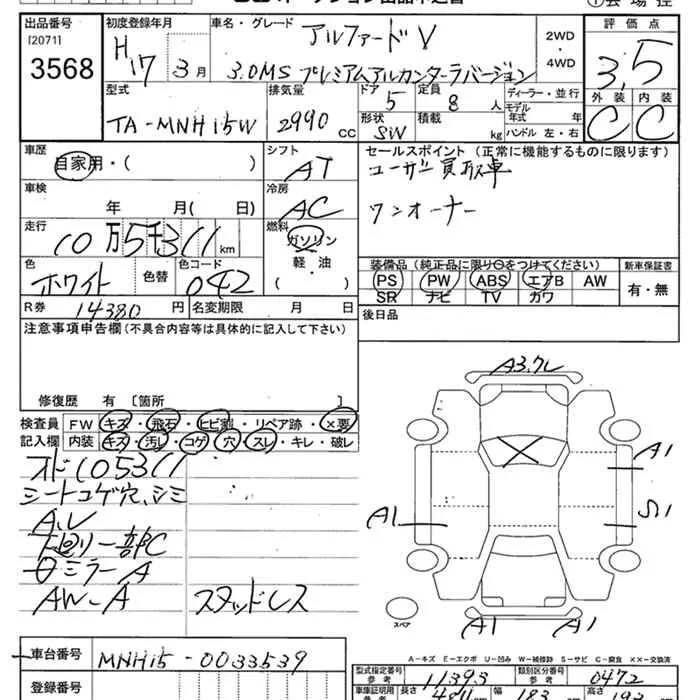 出品番号
[20711]
3568
初度登録年月
H17 3月
車名・グレード
アルファードV
3.0MS プレミアムアルカンターラバージョン
2WD・4WD
評価点
3.5
外装 内装
C C
型式
TA-MNH15W
排気量
2990 cc
ドア 5
形状 SW
定員 8 人
積載 kg
ディーラー・並行
モデル年式 年
ハンドル 左・右
車歴
自家用・( )
シフト
AT
車検
年 月(日)
冷房
AC
走行
10万5千311km
燃料
ガソリン
軽・油
( )
色
ホワイト
色替
色コード
042
R券 14380 円
名変期限 月 日
セールスポイント (正常に機能するものに限ります)
ユーザー買取車
ワンオーナー
装備品 (純正品に限り○をつけてください)
PS PW ABS エアB AW
SR ナビ TV カワ
新車保証書
有・無
後日品
注意事項申告欄(不具合内容等は具体的に記入して下さい)
修復歴 有 〔箇所 〕
検査員記入欄
FW キズ・飛石・ヒビ割・リペア跡・×要
内装 キズ・汚レ・コゲ・穴・スレ・キレ・破レ
オド105311
シートコゲ穴、シミ
A、レ
下廻り一部C
ミラーA
AW-A スタッドレス
A3.7レ
A1
A1
A1 A1
スペア
A-キズ E-エクボ U-凹み W-補修跡 S-サビ C-腐食 ××-交換済
車台番号
MNH15-0033539
登録番号
型式指定番号 参考 11393
類別区分番号 参考 0472
長さ
幅 183 cm
高さ 193 cm